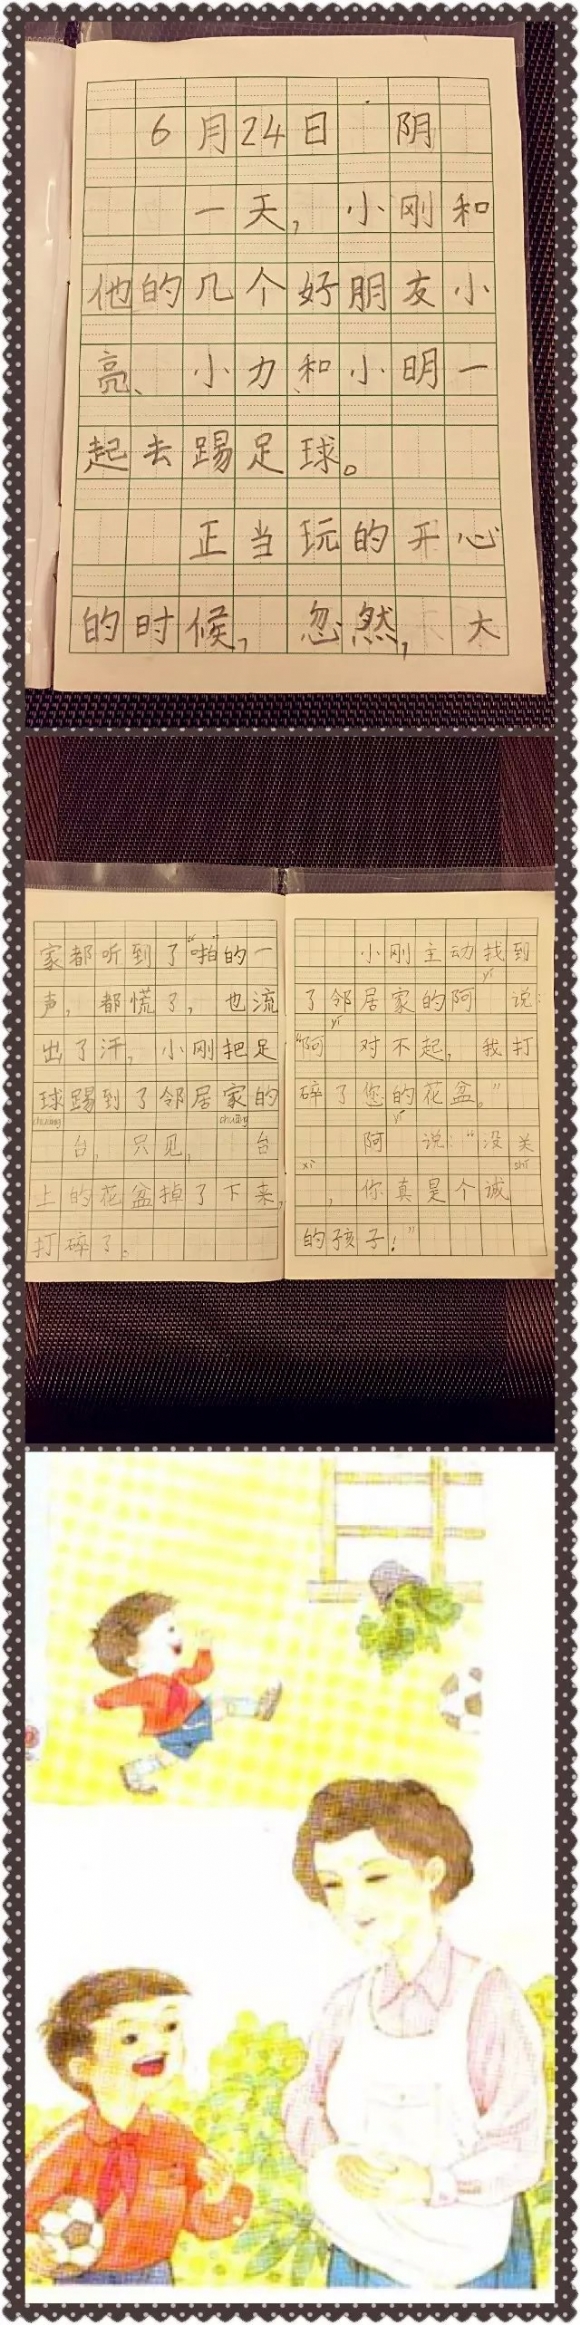 6月24日 阴
一天，小刚和
他的几个好朋友小
亮、小力和小明一
起去踢足球。
正当玩的开心
的时候，忽然，大
家都听到了“啪”的一
声，都慌了，也流
出了汗，小刚把足
球踢到了邻居家的
chuāng chuāng
台，只见， 台
上的花盆掉了下来，
打碎了。
小刚主动找到
yí
了邻居家的阿 说：
yí
“阿 对不起，我打
碎了您的花盆。”
yí
阿 说：“没关
xi shí
，你真是个诚
的孩子！”